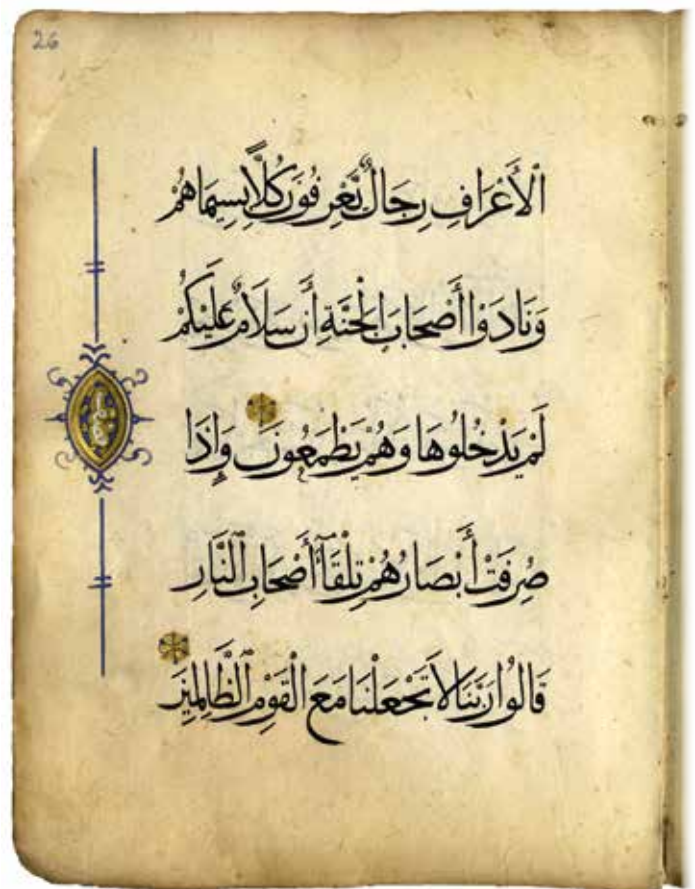 26
الْأَعْرَافِ رِجَالٌ يَعْرِفُونَ كُلًّا بِسِيمَاهُمْ
وَنَادَوْا أَصْحَابَ الْجَنَّةِ أَنْ سَلَامٌ عَلَيْكُمْ
لَمْ يَدْخُلُوهَا وَهُمْ يَطْمَعُونَ وَإِذَا
صُرِفَتْ أَبْصَارُهُمْ تِلْقَآءَ أَصْحَابِ النَّارِ
قَالُوا رَبَّنَا لَا تَجْعَلْنَا مَعَ الْقَوْمِ الظَّالِمِينَ